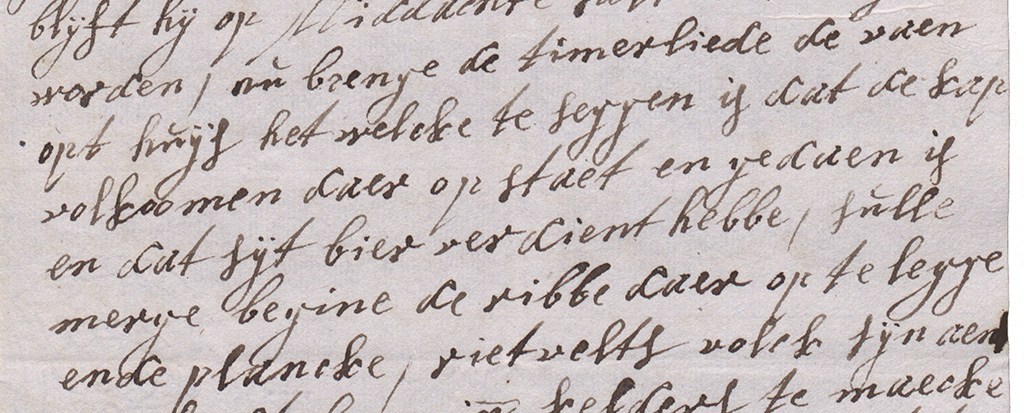 blyft hy op Middachte
worden / nu brenge de timerliede de vaen
opt huijs het welcke te seggen is dat de kap
volkoomen daer op staet en gedaen is
en dat sijt bier verdient hebbe / sulle
merge begine de ribbe daer op te legge
ende plancke / rietvelts volck sijn aent
kelders te maecke